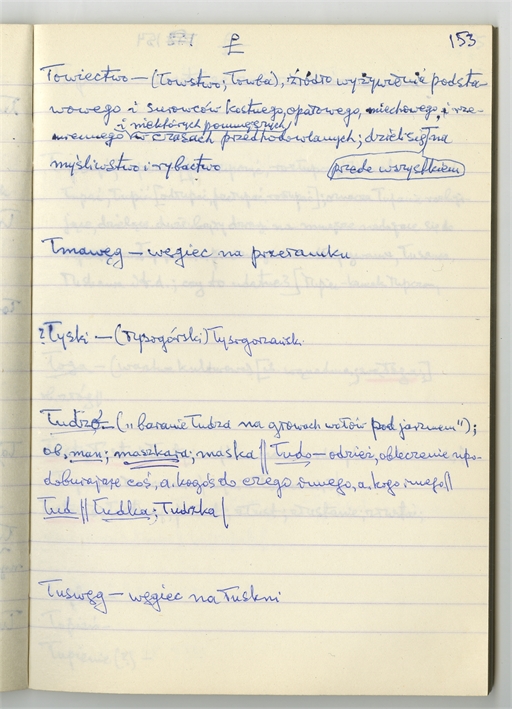 Ł 153
Łowiectwo – (Łowstwo; Łowba), źródło wyżywienia podsta-
wowego i surowców kostnego, opałowego, miechowego, i rze-
i niektórych pomniejszych
miennego w czasach przedhodowlanych; dzieli się na
myślistwo i rybactwo przede wszystkiem
Łmawęg – węgiec na przełamku
Łyski – (Łysogórski) Łysogorzański
Łudzo – („baranie łudza na głowach wołów pod jarzmem");
ob. man; maszkara; maska || Łudo – odzież, obleczenie upo-
dobniające coś, a. kogoś do czego innego, a. kogo innego ||
Łud || Łudka; Łudzka |
Łuswęg – węgiec na łuskni